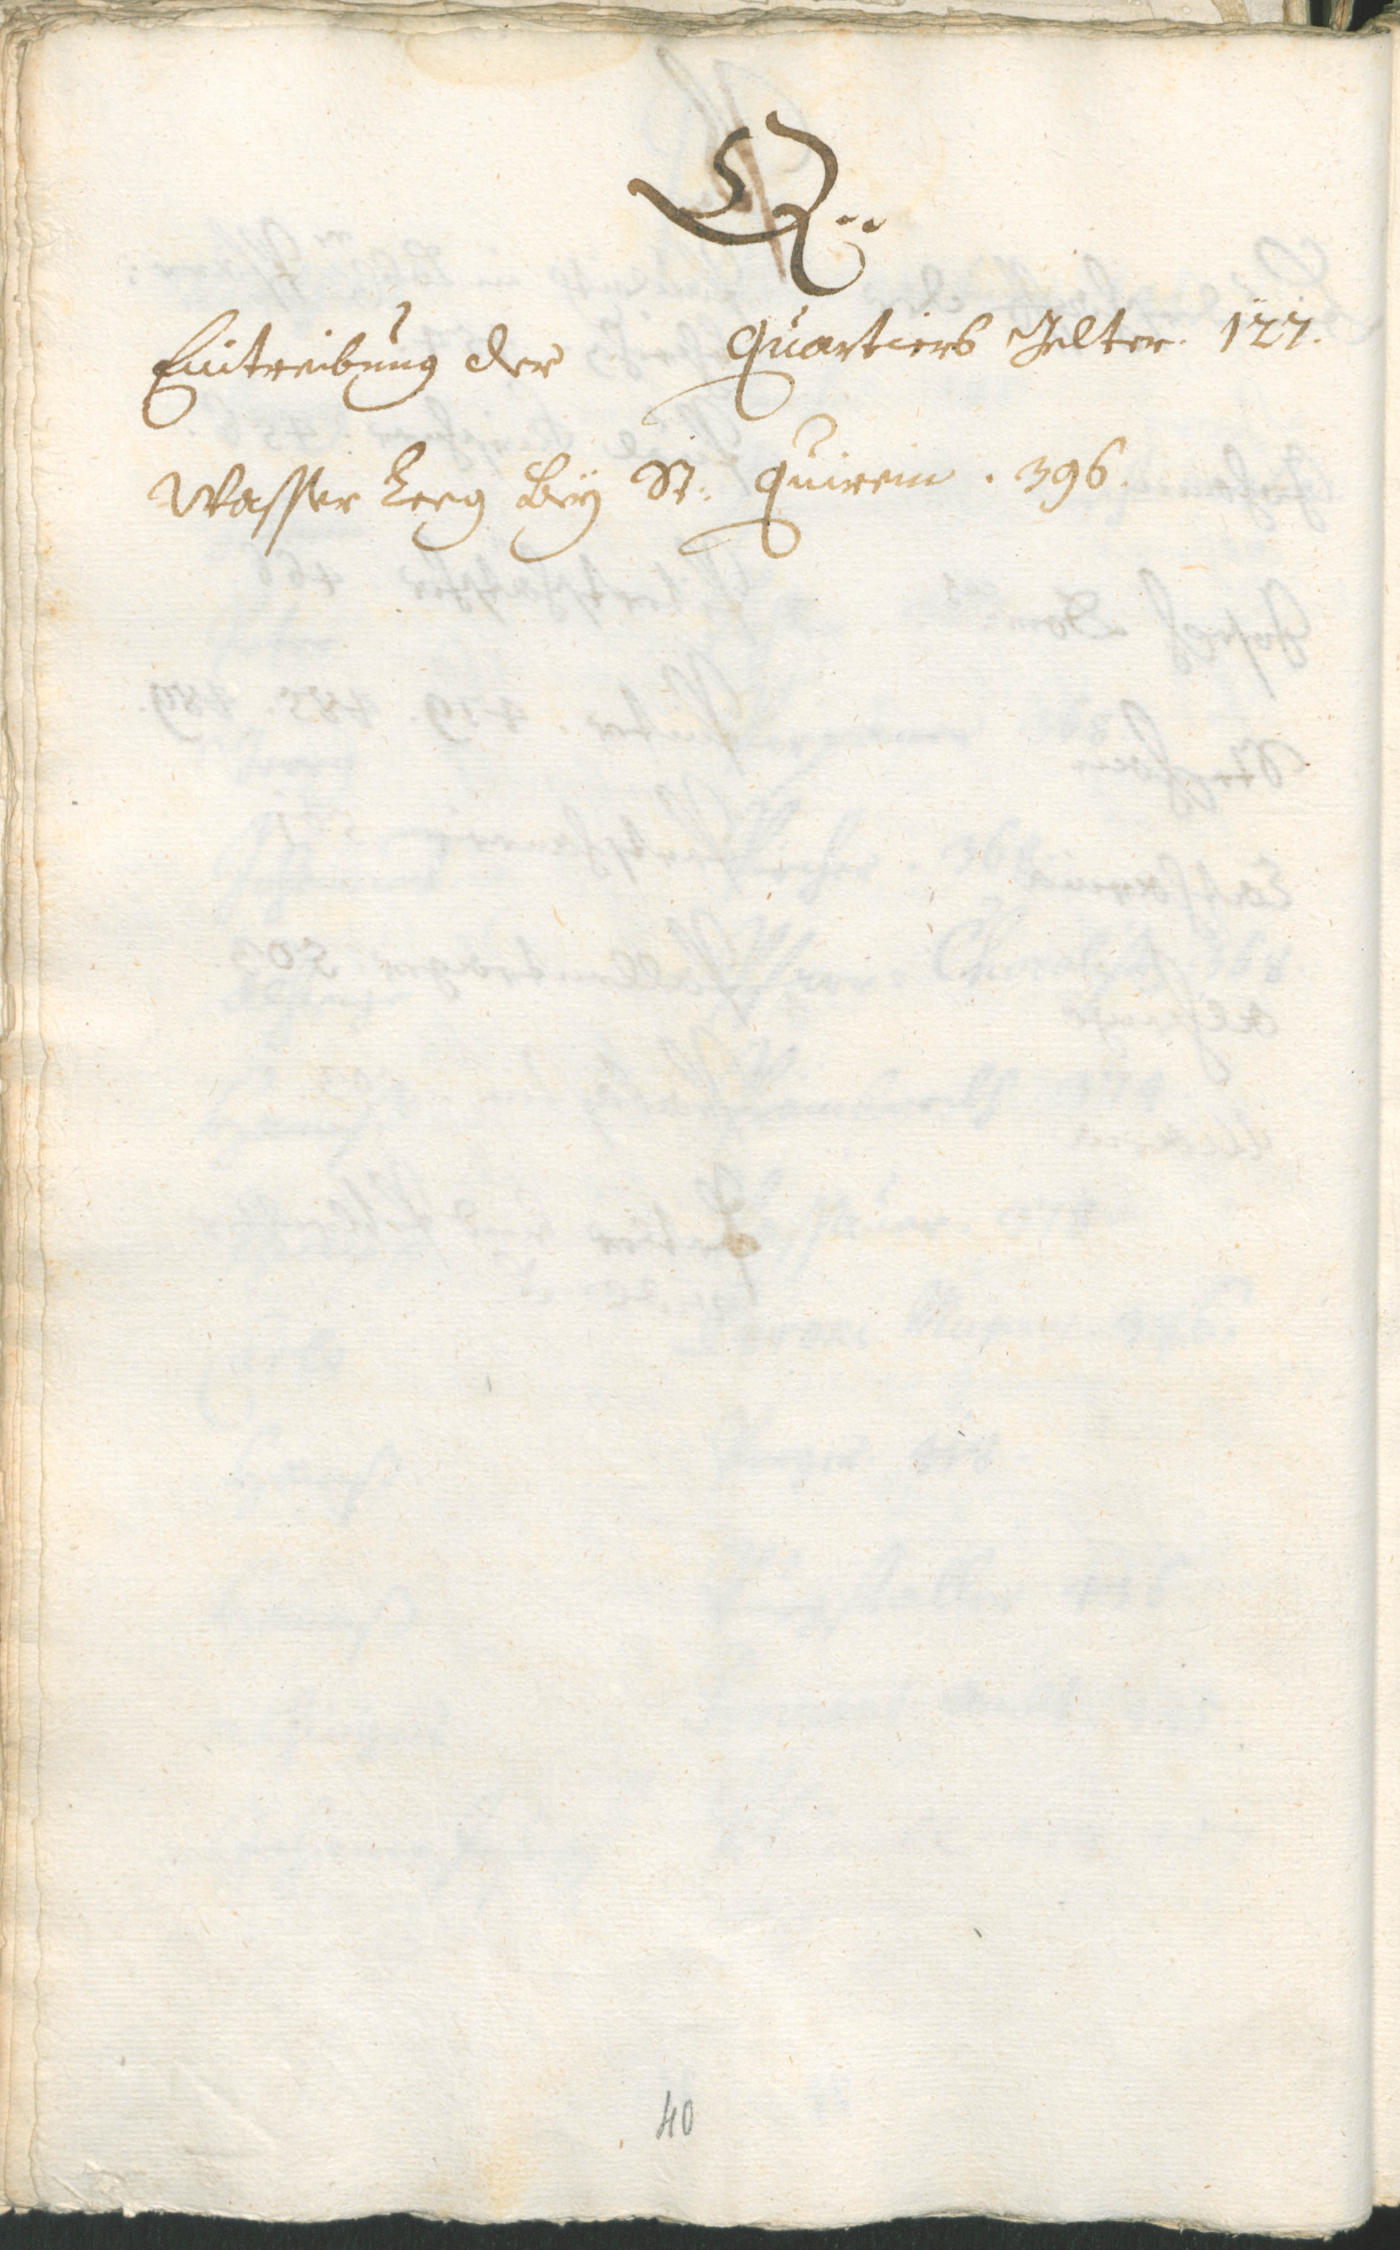 Q..
Eintreibung der Quartiers Gelter. 127.
Wasser Leeg beÿ St: Quirein. 396.
40